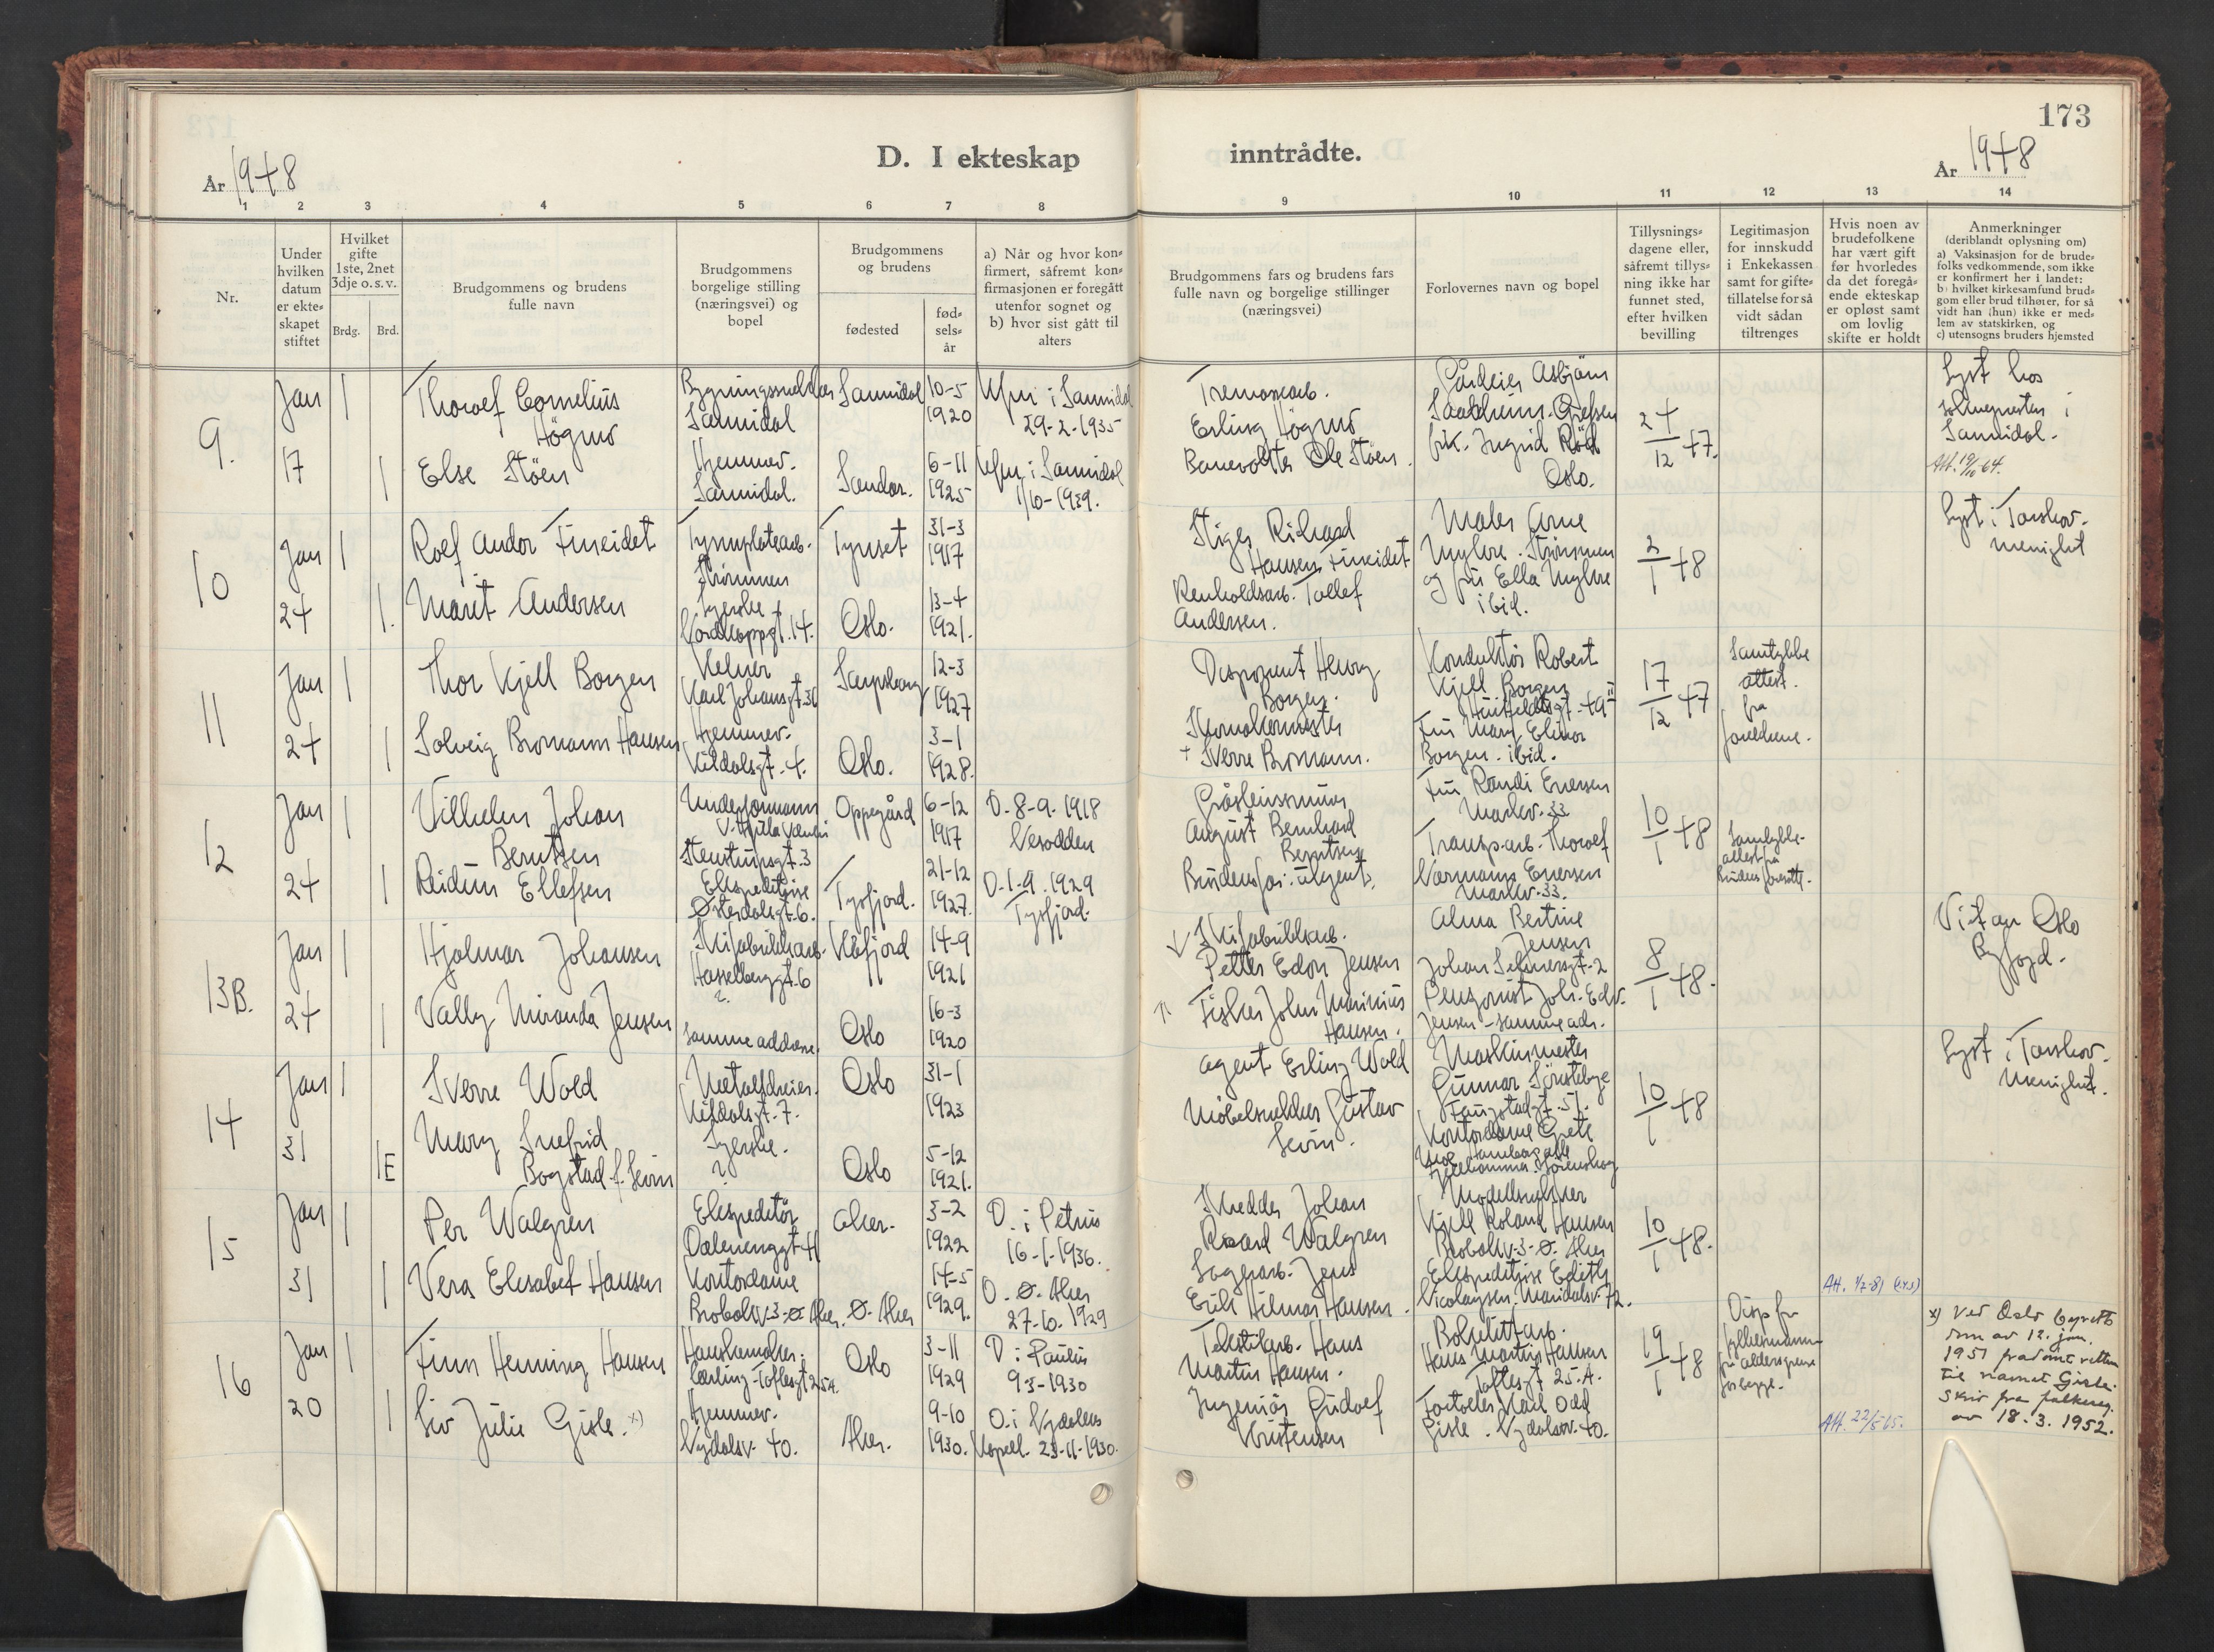 173
D. I ekteskap inntrådte.
År 1948
År 1948
1 2 3 4 5 6 7 8 9 10 11 12 13 14
Nr.
Under
hvilken
datum
er ekte-
skapet
stiftet
Hvilket
gifte
1ste, 2net
3dje o. s. v.
Brdg. Brd.
Brudgommens og brudens
fulle navn
Brudgommens
borgelige stilling
(næringsvei) og
bopel
Brudgommens
og brudens
fødested
fød-
sels-
år
a) Når og hvor kon-
firmert, såfremt kon-
firmasjonen er foregått
utenfor sognet og
b) hvor sist gått til
alters
Brudgommens fars og brudens fars
fulle navn og borgelige stillinger
(næringsvei)
Forlovernes navn og bopel
Tillysnings-
dagene eller,
såfremt tillys-
ning ikke har
funnet sted,
efter hvilken
bevilling
Legitimasjon
for innskudd
i Enkekassen
samt for gifte-
tillatelse for så
vidt sådan
tiltrenges
Hvis noen av
brudefolkene
har vært gift
før hvorledes
da det foregå-
ende ekteskap
er opløst samt
om lovlig
skifte er holdt
Anmerkninger
(deriblandt oplysning om)
a) Vaksinasjon for de brude-
folks vedkommende, som ikke
er konfirmert her i landet:
b) hvilket kirkesamfund brud-
gom eller brud tilhører, for så
vidt han (hun) ikke er med-
lem av statskirken, og
c) utensogns bruders hjemsted
9.
Jan
17
1
1
Thorolf Cornelius
Högmo
Else Stöen
Sannidal
Hjemmev.
Sannidal.
Sannidal
Sandar.
10-5
1920
6-11
1925
Kfm i Sannidal
29-2-1935
Kfm i Sannidal
1/10-1939.
Tremassearb.
Erling Högmo
Banevokter Ole Stöen.
Gårdeier Asbjörn
frk. Ingrid
Oslo.
24/12 47.
Lyst hos
soknepresten i
Sannidal.
Att. 19/10 64.
10
Jan
24
1
1.
Rolf Andor Fineidet
Marit Andersen
Strömmen
Syerske
Tynset
Oslo.
31-3
1917
13-4
1921.
Stiger Rikard
Hansen Fineidet
Renholdsarb. Tollef
Andersen.
Maler Arne
Myhre. Strömmen
og fru Ella Myhre
ibid.
2/1 48
Lyst i Torshov-
menighet
11
Jan
24
1
1
Thor Kjell Borgen
Solveig Bromann Hansen
Kelner
Karl Johansgt. 31
Hjemmev.
Kildalsgt. 4.
Sarpsborg
Oslo.
12-3
1927
3-1
1928.
Disponent Henry
Borgen.
Skomakermester
+ Sverre Bromann.
Konduktör Robert
Kjell Borgen
Fru Mary Elinor
Borgen. ibid.
17/12 47
Samtykke
attest.
fra
foreldrene.
12
Jan
24
1
1
Vilhelm Johan
Berntsen
Reidun Ellefsen
Underformann
Stenstrupsgt. 3
Ekspeditrise
Österdalsgt. 6.
Oppegård
Tysfjord.
6-12
1917
21-12
1927.
D. 8-9. 1918
Nesodden
D. 1-9. 1929
Tysfjord.
August Bernhard
Berntsen
Brudens far: ukjent.
Fru Randi Enersen
Markv. 33
Transp.arb. Thorolf
Normann Enersen
Markv. 33.
10/1 48
Samtykke-
attest fra
brudens foresatte.
13B.
Jan
24
1
1
Hjalmar Johansen
Vally Miranda Jensen
Skifabrikkarb.
Hasselberggt. 6
?
samme addresse.
Kåfjord
Oslo
14-9
1921
16-3
1920
Skifabrikkarb.
Petter Edon Jensen
Fisker John Marinius
Hansen.
Alma Bertine
Jensen
Johan Selmersgt. 2
Pensjonist Joh. Edv.
Jensen - samme adr.
8/1 48.
Viet av Oslo
Byfogd.
14
Jan
31
1
1E
Sverre Wold
Mary Snefrid
Bogstad f. Levin
Metalldreier.
Kildalsgt. 7.
Syerske.
?
Oslo
Oslo
31-1
1923
5-12
1921.
Agent Erling Wold
Möbelsnekker Gustav
Levin.
Maskinmester
Gunnar
Faugstadgt. 51.
Kontordame Grete
10/1 48
Lyst i Torshov-
menighet.
15
Jan
31
1
1
Per Walgren
Vera Elisabet Hansen
Ekspeditör
Dælenenggt 41
Kontordame
Brobakkv. 3-Ø. Aker.
Aker.
Ø. Aker
3-2
1922
14-5
1929.
D. i Petrus
16-1-1936.
D. Ø. Aker
27-10. 1929
Skredder Johan
Rikard Walgren
Lagerarb. Jens
Erik Hilmar Hansen.
Modellsnekker
Kjell Roland Hansen
Brobakkv. 3-Ø. Aker
Ekspeditrise Edith
Nicolaysen. Maridalsv. 72.
10/1 48.
Att. 1/2-81
16
Jan
20
1
1
Finn Henning Hansen
Siv Julie Gisle. x)
Hanskemaker-
lærling - Toftesgt 25A.
Hjemmev.
Nydalsv. 40.
Oslo
Aker.
3-11
1929
9-10
1930.
D. i Paulus
9 3-1930
D. i Nydalens
Kapell. 23-11-1930.
Tekstilarb. Hans
Martin Hansen.
Ingeniör Gudolf
Kristensen
Hans Martin Hansen
Toftesgt 25. A.
Karl Odd
Gisle. Nydalsv. 40.
19/1 48
Disp fra
fylkesmannen
fra aldersgrense
for begge.
Att. 22/5 65.
x) Ved Oslo byretts
dom av 12. jan.
1951 fradömt retten
til navnet Gisle.
Skriv fra folkereg.
av 18. 3. 1952.